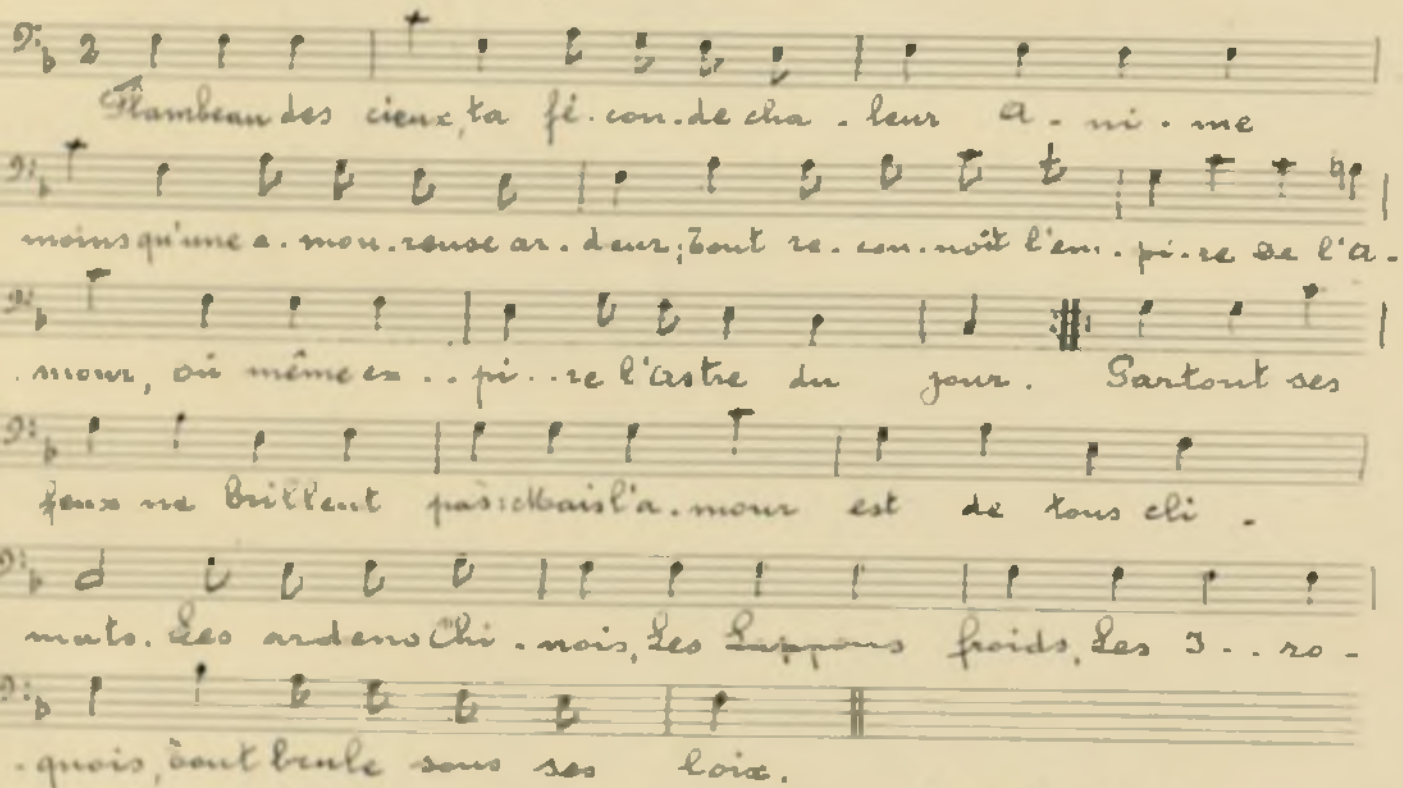 Flambeau des cieux, ta fé.con.de cha.leur a.ni.me
moins qu'une a.mou.reuse ar.deur; Tout re.con.noît l'em.pi.re de l'a.
.mour, où même ex..pi..re l'astre du jour. Partout ses
feux ne brillent pas: Mais l'a.mour est de tous cli.
mats. Les ardens Chi.nois, Les Lappons froids, Les I..ro.
.quois, tout brule sous ses loix.